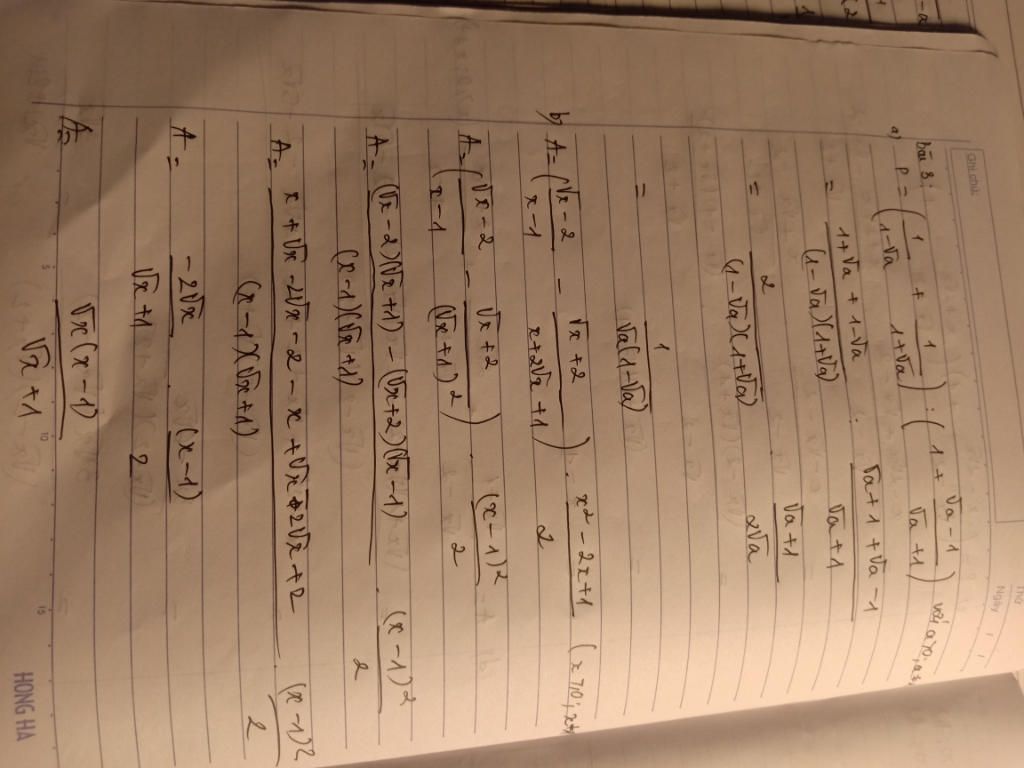 Ghi nhớ
Ngày / /
bài 8:
a) P = (1/(1-√a) + 1/(1+√a)) : (1 + (√a-1)/(√a+1)) với a>0;
= (1+√a+1-√a)/((1-√a)(1+√a)) : (√a+1+√a-1)/(√a+1)
= 2/((1-√a)(1+√a)) . (√a+1)/(2√a)
= 1/(√a(1-√a))
b) A = ((√x-2)/(x-1) - (√x+2)/(x+2√x+1)) . (x²-2x+1)/2 (x>0;
A = ((√x-2)/(x-1) - (√x+2)/(√x+1)²) . (x-1)²/2
A = ((√x-2)(√x+1) - (√x+2)(√x-1))/((x-1)(√x+1)) . (x-1)²/2
A = (x+√x-2√x-2-x+√x-2√x+2)/((x-1)(√x+1)) . (x-1)²/2
A = (-2√x)/(√x+1) . (x-1)/2
A = (√x(x-1))/(√x+1)
5 10 15
HONG HA